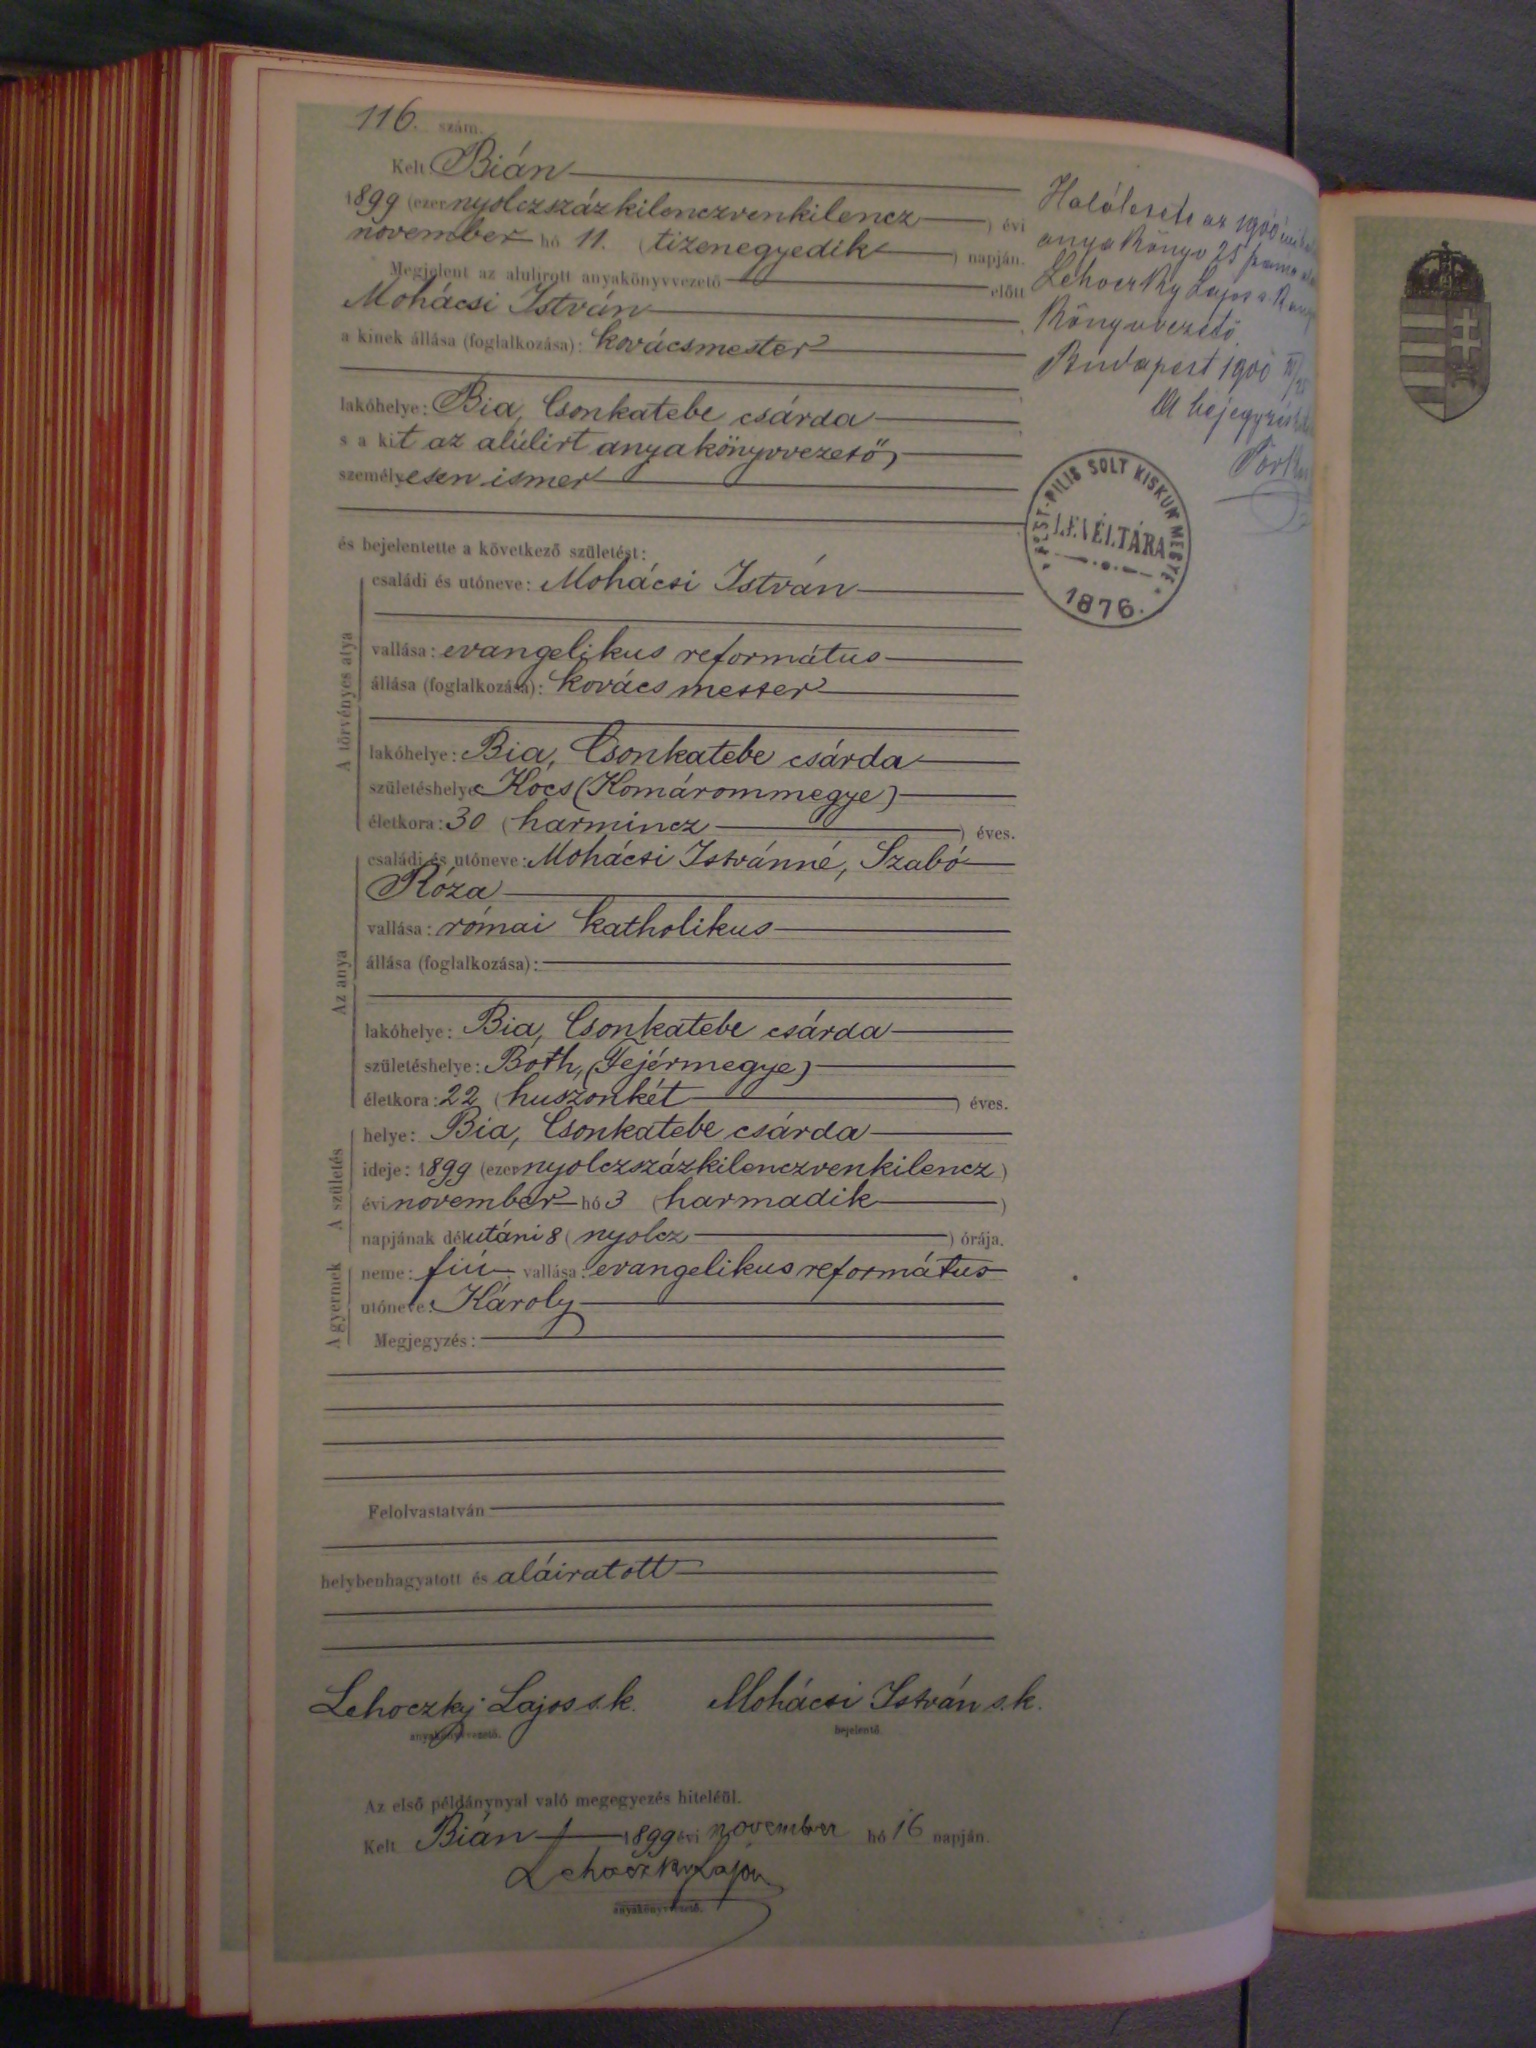 116. szám.
Kelt Bián
1899 (ezernyolczszázkilenczvenkilencz) évi
november hó 11. (tizenegyedik) napján.
Megjelent az alulirott anyakönyvvezető előtt
Mohácsi István
a kinek állása (foglalkozása): kovácsmester
lakóhelye: Bia, Csonkatebe csárda
s a kit az alúlirt anyakönyvvezető,
személyesen ismer
és bejelentette a következő születést:
A törvényes atya
családi és utóneve: Mohácsi István
vallása: evangelikus református
állása (foglalkozása): kovács mester
lakóhelye: Bia, Csonkatebe csárda
születéshelye Kocs (Komárommegye)
életkora: 30 (harmincz) éves.
Az anya
családi és utóneve: Mohácsi Istvánné, Szabó
Róza
vallása: római katholikus
állása (foglalkozása):
lakóhelye: Bia, Csonkatebe csárda
születéshelye: Both, (Fejérmegye)
életkora: 22 (huszonkét) éves.
A születés
helye: Bia, Csonkatebe csárda
ideje: 1899 (ezernyolczszázkilenczvenkilencz)
évi november hó 3 (harmadik)
napjának délutáni 8 (nyolcz) órája.
A gyermek
neme: fiú vallása: evangelikus református
utóneve: Károly
Megjegyzés:
Felolvastatván
helybenhagyatott és aláiratott
Lehoczky Lajos s.k. Mohácsi István s.k.
anyakönyvvezető. bejelentő.
Az első példánynyal való megegyezés hiteléül.
Kelt Bián 1899 évi november hó 16 napján.
Lehoczky Lajos
anyakönyvvezető.
Halálesete az 1900
anyakönyv 25 szám
Lehoczky Lajos
könyvvezető
Budapest 1900
A bejegyzés
PEST-PILIS SOLT KISKUN MEGYE
LEVÉLTÁRA
1876.